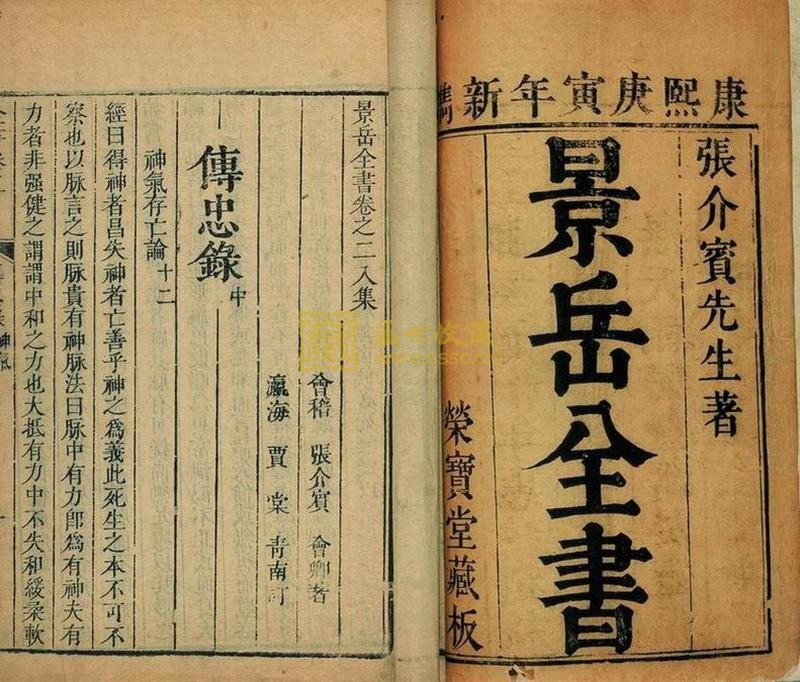 康熙庚寅年新鐫
張介賓先生著
景岳全書
榮寶堂藏板
景岳全書卷之二入集
會稽 張介賓 會卿著
瀛海 賈棠 青南訂
傳忠錄 中
神氣存亡論 十二
經曰得神者昌失神者亡善乎神之爲義此死生之本不可不
察也以脉言之則脉貴有神脉法曰脉中有力卽爲有神夫有
力者非强健之謂謂中和之力也大抵有力中不失和緩柔軟